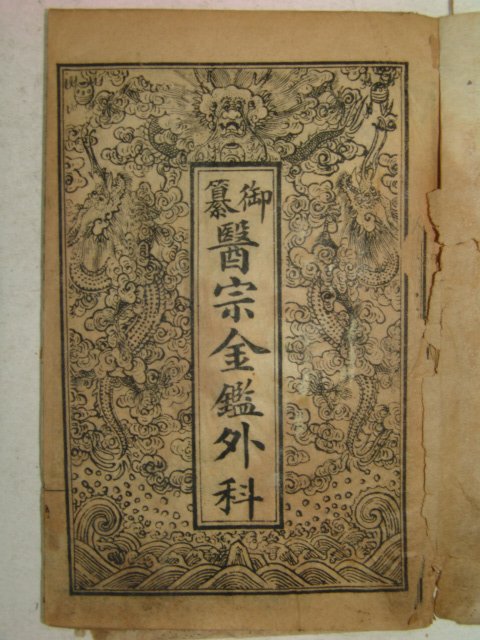 御纂
醫宗金鑑外科